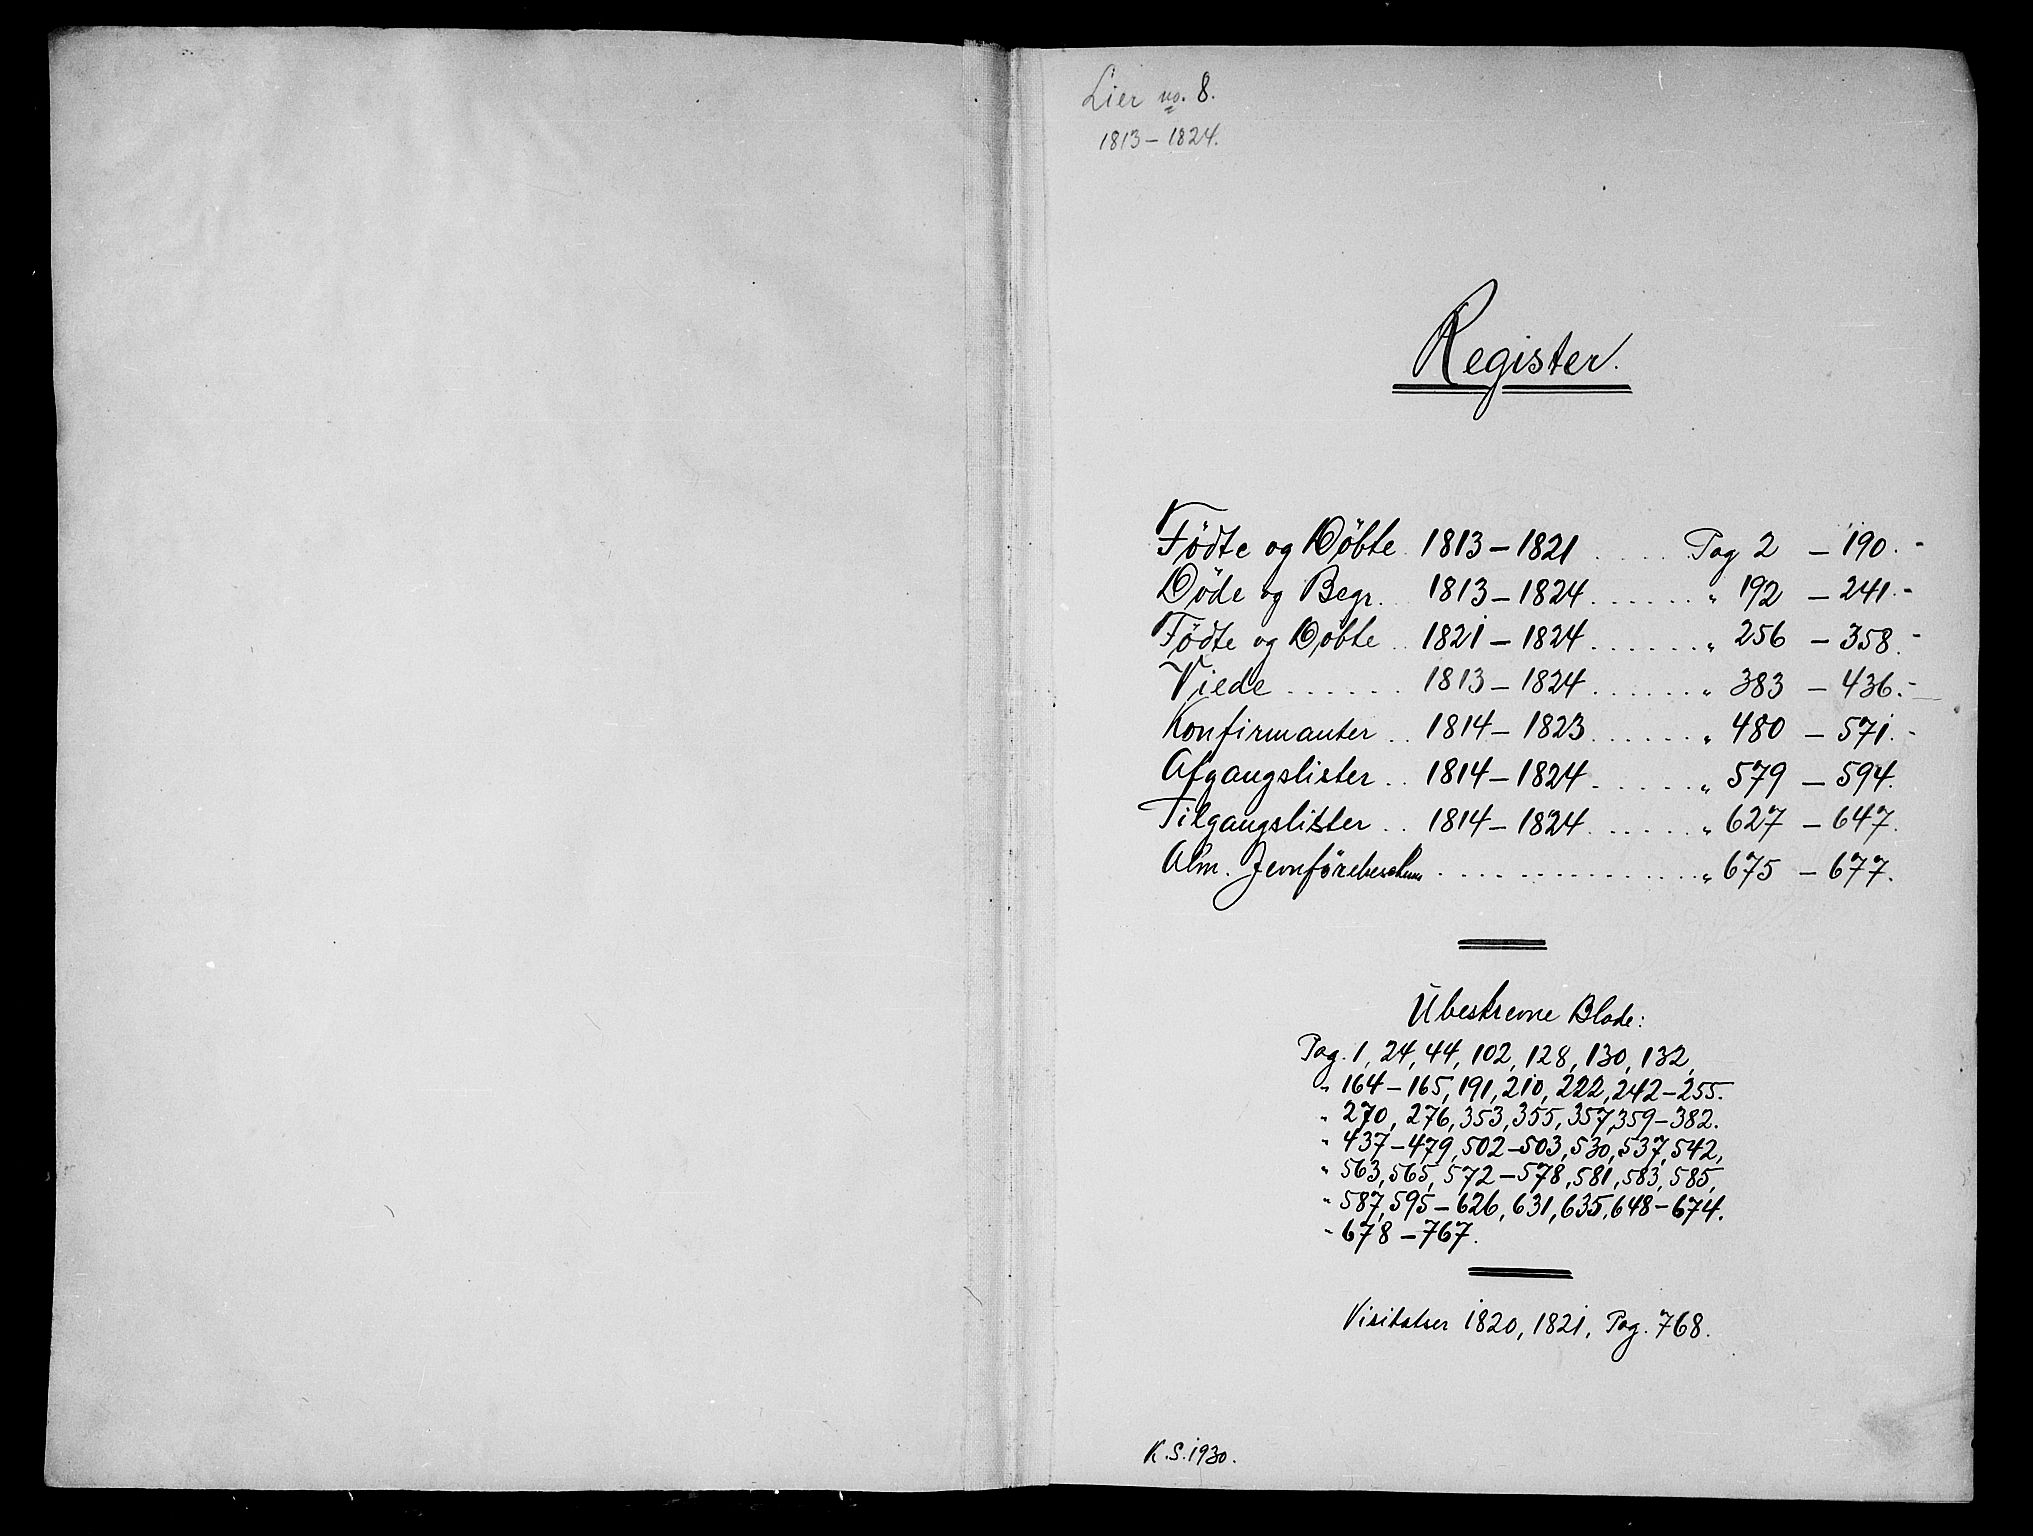 Lier no. 8.
1813 – 1824.
Register.
Födte og Döbte . 1813 – 1821 . . . . . Pag 2 – 190. -
Döde og Begr. . . 1813 – 1824 . . . . . . „ 192 – 241. -
Födte og Döbte . . 1821 – 1824 . . . . . . „ 256 – 358. -
Viede . . . . . . 1813 – 1824 . . . . . . „ 383 – 436. -
Konfirmanter . . 1814 – 1823 . . . . . . „ 480 – 571. -
Afgangslister . . 1814 – 1824 . . . . . . „ 579 – 594.
Tilgangslister . . 1814 – 1824 . . . . . . „ 627 – 647.
Alm. . . . . . . . . . . . . . . . „ 675 – 677.
Übeskrevne Blade:
Pag. 1, 24, 44, 102, 128, 130, 132,
„ 164 – 165, 191, 210, 222, 242 – 255.
„ 270, 276, 353, 355, 357, 359 – 382.
„ 437 – 479, 502 – 503, 530, 537, 542,
„ 563, 565, 572 – 578, 581, 583, 585,
„ 587, 595 – 626, 631, 635, 648 – 674.
„ 678 – 767.
Visitatser 1820, 1821, Pag. 768.
K. S. 1930.